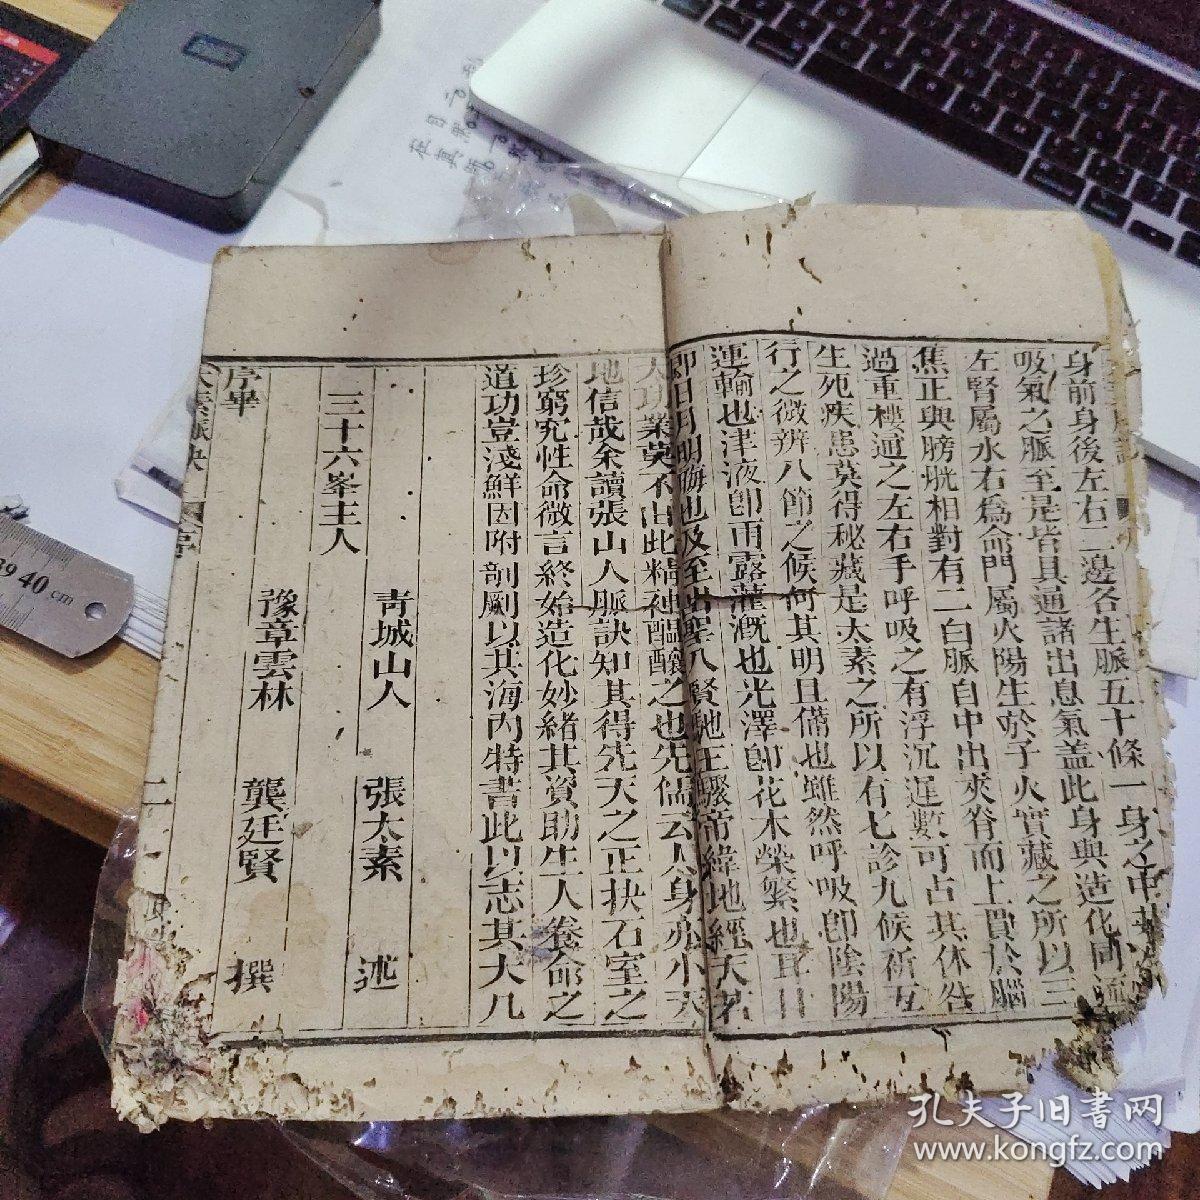 身前身後左右二邊各生脈五十條一身之中
吸氣之脈至是皆具通諸出息氣盖此身與造化同
左腎屬水右爲命門屬火陽生於子火實藏之所以三
焦正與膀胱相對有二白脈自中出夾脊而上貫於腦
過重樓通之左右手呼吸之有浮沉遲數可占其休咎
生死疾患莫得秘藏是太素之所以有七診九候祈互
行之微辨八節之候何其明且備也雖然呼吸卽陰陽
運輸也津液卽雨露灌溉也光澤卽花木榮繁也耳目
卽日月明晦也及至出聖入賢馳王驟帝緯地經天茗
大功業莫不由此精神醖釀之也先儒云人身亦小天
地信哉余讀張山人脈訣知其得先天之正抉石室之
珍窮究性命微言終始造化妙緒其資助生人養命之
道功豈淺鮮因附剞劂以共海內特書此以志其大凡
青城山人 張太素 述
三十六峯主人
豫章雲林 龔廷賢 撰
序畢
太素脈訣 序 二
40 cm
孔夫子旧书网
www.kongfz.com